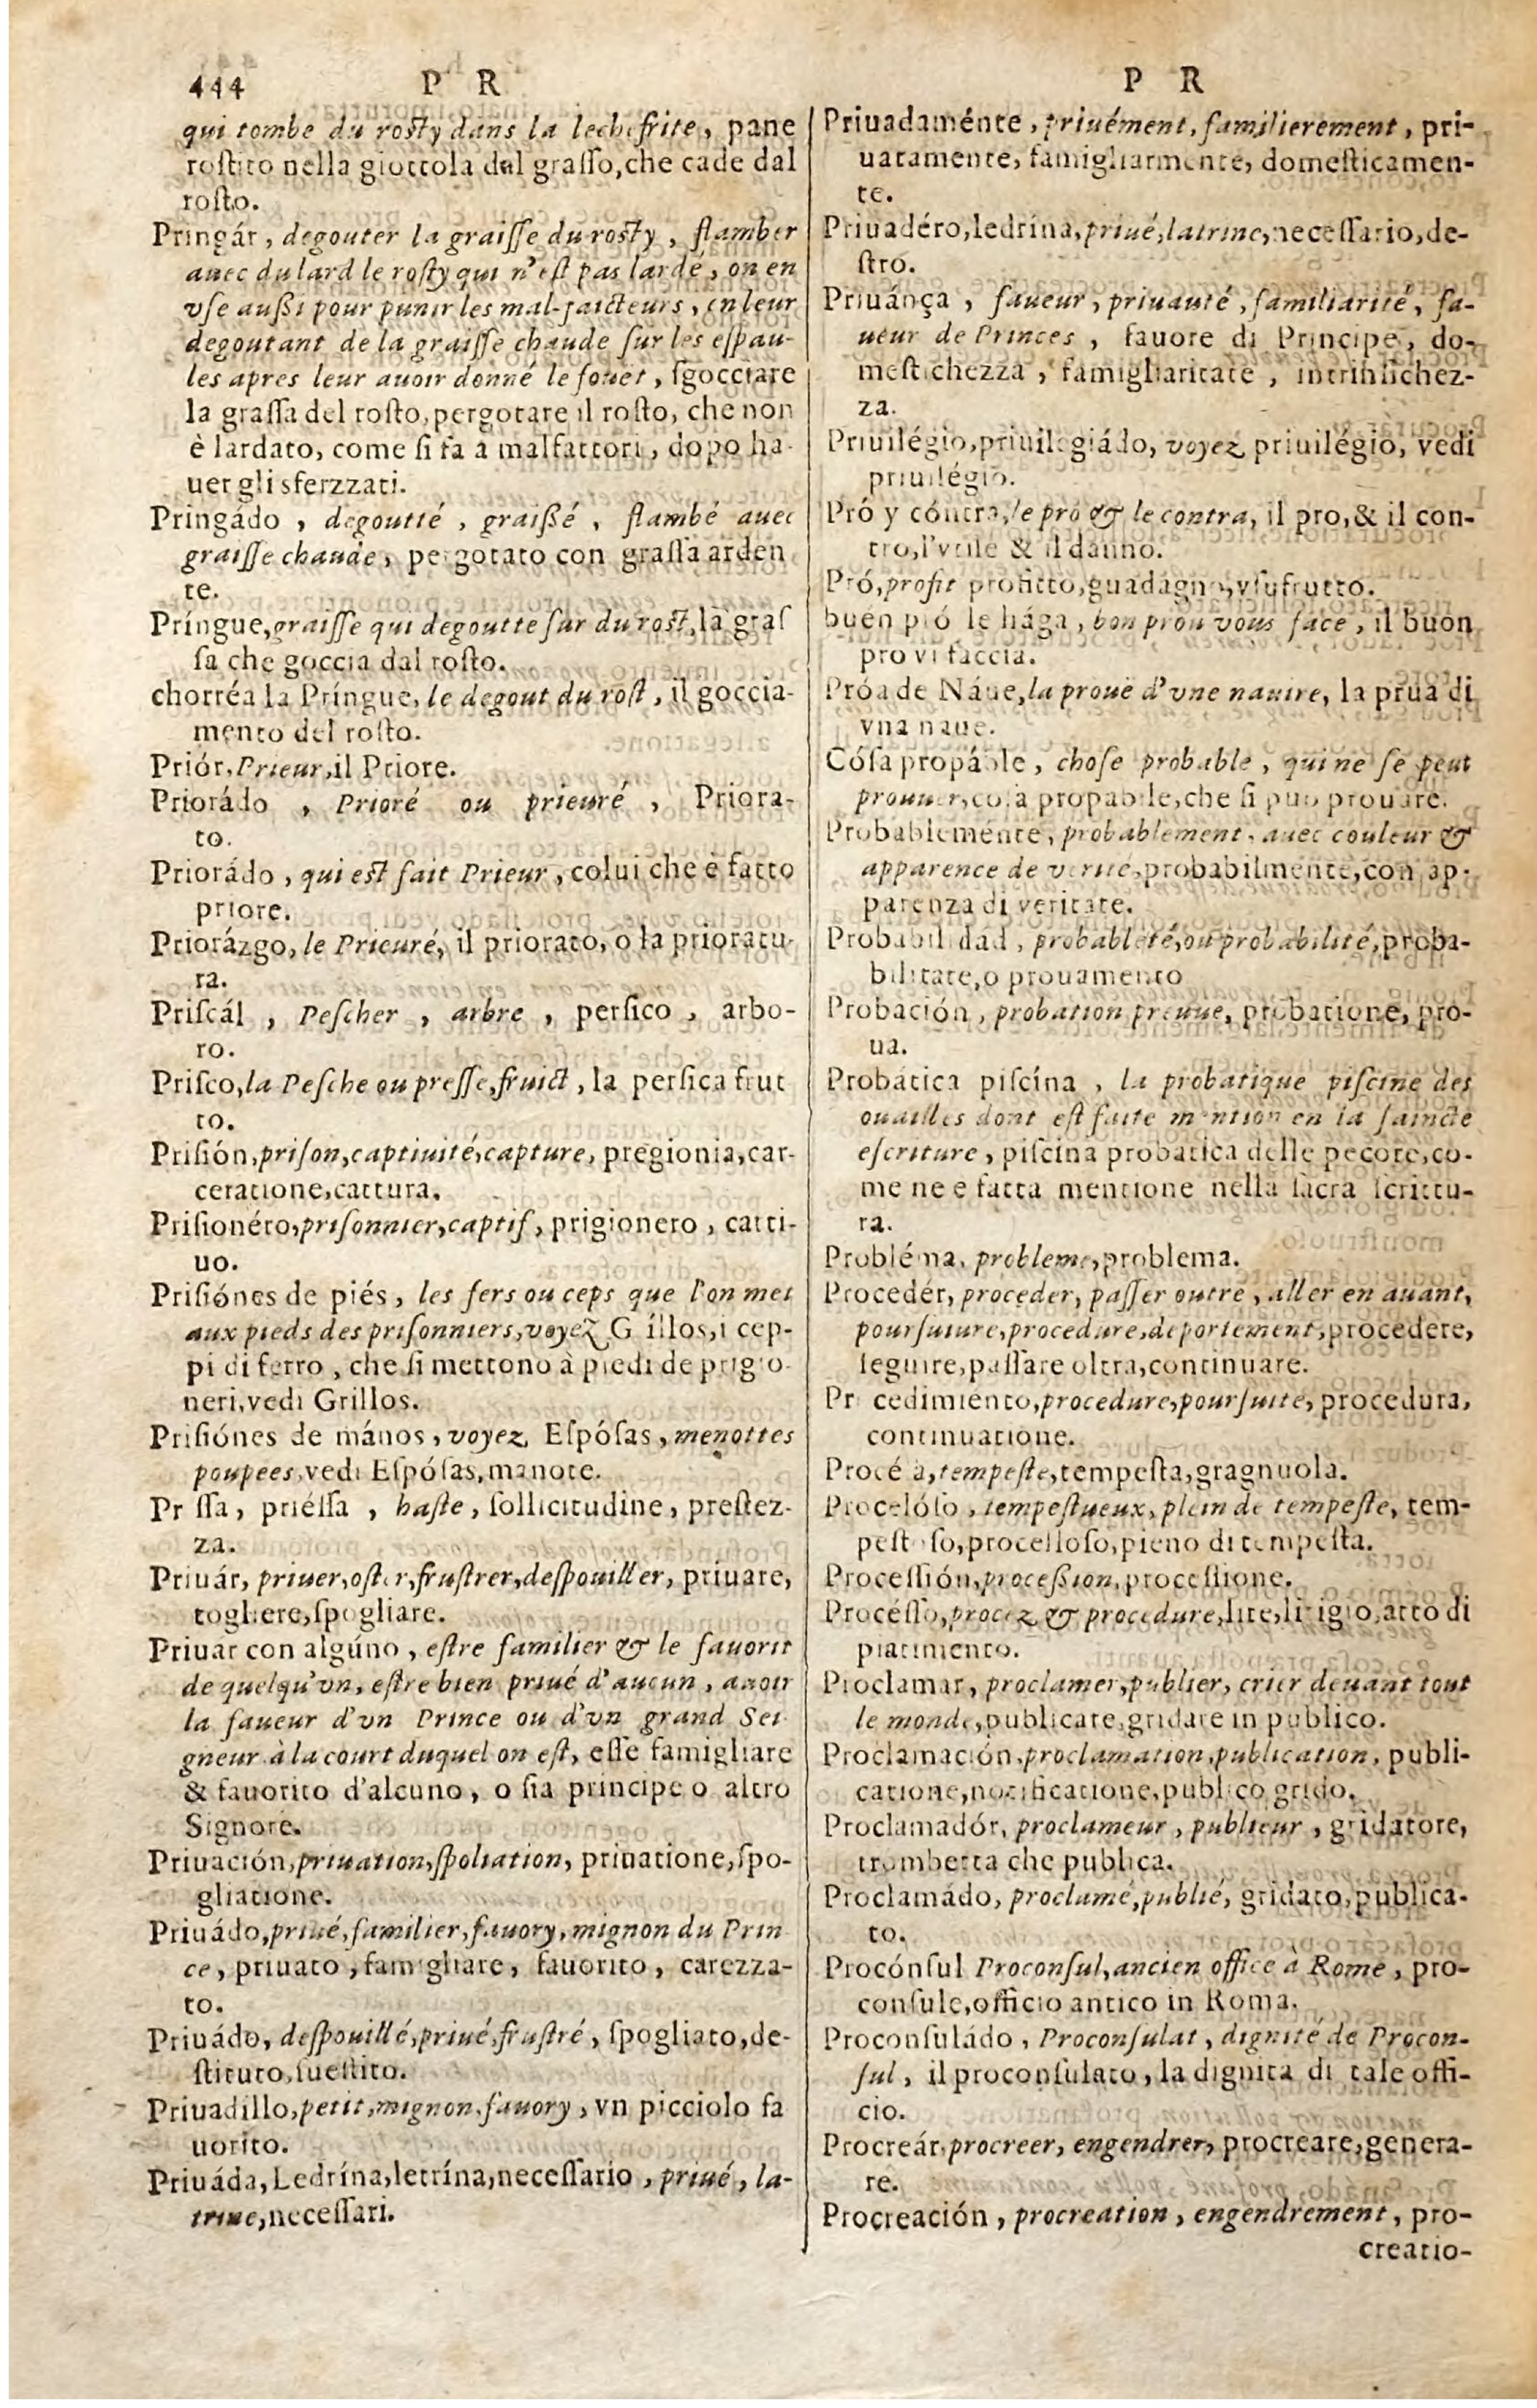 444 P R
qui tombe du rosty dans la lechefrite, pane
rostito nella gioctola dal grasso, che cade dal
rosto.
Pringár, degouter la graisse du rosty, flamber
auec du lard le rosty qui n'est pas lardé, on en
vse aussi pour punir les mal-faicteurs, en leur
degoutant de la graisse chaude sur les espau-
les apres leur auoir donné le fouët, sgocciare
la grassa del rosto, pergotare il rosto, che non
è lardato, come si fa a malfattori, dopo ha-
uer gli sferzzati.
Pringádo, degoutté, graissé, flambé auec
graisse chaude, pergotato con grassa arden
te.
Príngue, graisse qui degoutte sur du rost, la gras
sa che goccia dal rosto.
chorréa la Príngue, le degout du rost, il goccia-
mento del rosto.
Priór, Prieur, il Priore.
Priorádo, Prioré ou prieuré, Priora-
to.
Priorádo, qui est fait Prieur, colui che è fatto
priore.
Priorázgo, le Prieuré, il priorato, o la prioratu-
ra.
Priscál, Pescher, arbre, persico, arbo-
ro.
Prisco, la Pesche ou presse, fruict, la persica frut
to.
Prisión, prison, captiuité, capture, pregionia, car-
ceratione, cattura.
Prisionéro, prisonnier, captif, prigionero, catti-
uo.
Prisiónes de piés, les fers ou ceps que l'on met
aux pieds des prisonniers, voyez G illos, i cep-
pi di ferro, che si mettono à piedi de prigio-
neri, vedi Grillos.
Prisiónes de mános, voyez Espósas, menottes
poupees, vedi Espósas, manote.
Pr ssa, priéssa, haste, sollicitudine, prestez-
za.
Priuár, priuer, oster, frustrer, despouiller, priuare,
togliere, spogliare.
Priuar con algúno, estre familier & le fauorit
de quelqu'vn, estre bien priué d'aucun, auoir
la faueur d'vn Prince ou d'vn grand Sei-
gneur à la court duquel on est, esse famigliare
& fauorito d'alcuno, o sia principe o altro
Signore.
Priuación, priuation, spoliation, priuatione, spo-
gliatione.
Priuádo, priué, familier, fauory, mignon du Prin
ce, priuato, famigliare, fauorito, carezza-
to.
Priuádo, despouillé, priué, frustré, spogliato, de-
stituto, suestito.
Priuadillo, petit, mignon, fauory, vn picciolo fa
uorito.
Priuáda, Ledrína, letrína, necessario, priué, la-
trine, necessari.
P R
Priuadaménte, priuément, familierement, pri-
uatamente, famigliarmente, domesticamen-
te.
Priuadéro, ledrína, priué, latrine, necessario, de-
stro.
Priuánça, faueur, priuauté, familiarité, fa-
ueur de Princes, fauore di Principe, do-
mestichezza, famigliaritate, intrinsichez-
za.
Priuilégio, priuilegiádo, voyez priuilégio, vedi
priuilégio.
Pró y cóntra, le pro & le contra, il pro, & il con-
tro, l'vtile & il danno.
Pró, profit profitto, guadagno, vsufrutto.
buén pró le hága, bon prou vous face, il buon
pro vi faccia.
Próa de Náue, la prouë d'vne nauire, la prua di
vna naue.
Cósa propáble, chose probable, qui ne se peut
prouuer, cosa propabile, che si puo prouare.
Probableménte, probablement, auec couleur &
apparence de verité, probabilmente, con ap-
parenza di veritate.
Probabilidád, probableté, ou probabilité, proba-
bilitate, o prouamento
Probación, probation preuue, probatione, pro-
ua.
Probática piscína, la probatique piscine des
ouailles dont est faite mention en la saincte
escriture, piscina probatica delle pecore, co-
me ne e fatta mentione nella sacra scrittu-
ra.
Probléma, probleme, problema.
Procedér, proceder, passer outre, aller en auant,
poursuiure, procedure, deportement, procedere,
seguire, passare oltra, continuare.
Pr cedimiento, procedure, poursuite, procedura,
continuatione.
Procé a, tempeste, tempesta, gragnuola.
Procelóso, tempestueux, plein de tempeste, tem-
pestoso, procelloso, pieno di tempesta.
Processión, procession, processione.
Procésso, procez & procedure, lite, litigio, atto di
piatimento.
Proclamar, proclamer, publier, crier deuant tout
le monde, publicare, gridare in publico.
Proclamación, proclamation, publication, publi-
catione, notificatione, publico grido.
Proclamadór, proclameur, publieur, gridatore,
trombetta che publica.
Proclamádo, proclamé, publié, gridato, publica-
to.
Procónsul Proconsul, ancien office à Rome, pro-
consule, officio antico in Roma.
Proconsuládo, Proconsulat, dignité de Procon-
sul, il proconsulato, la dignita di tale offi-
cio.
Procreár, procreer, engendrer, procreare, genera-
re.
Procreación, procreation, engendrement, pro-
creatio-